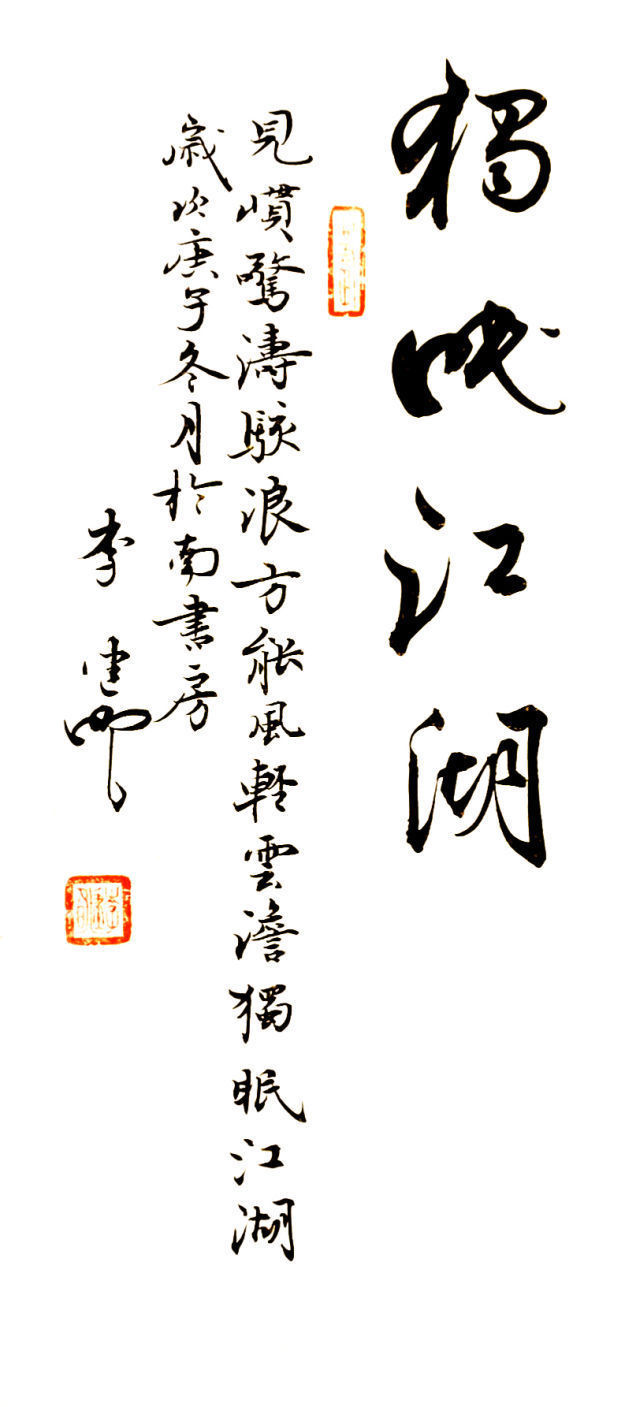 獨眠江湖
見慣驚濤駭浪方能風輕雲澹獨眠江湖
歲次庚子冬月於南書房
李建